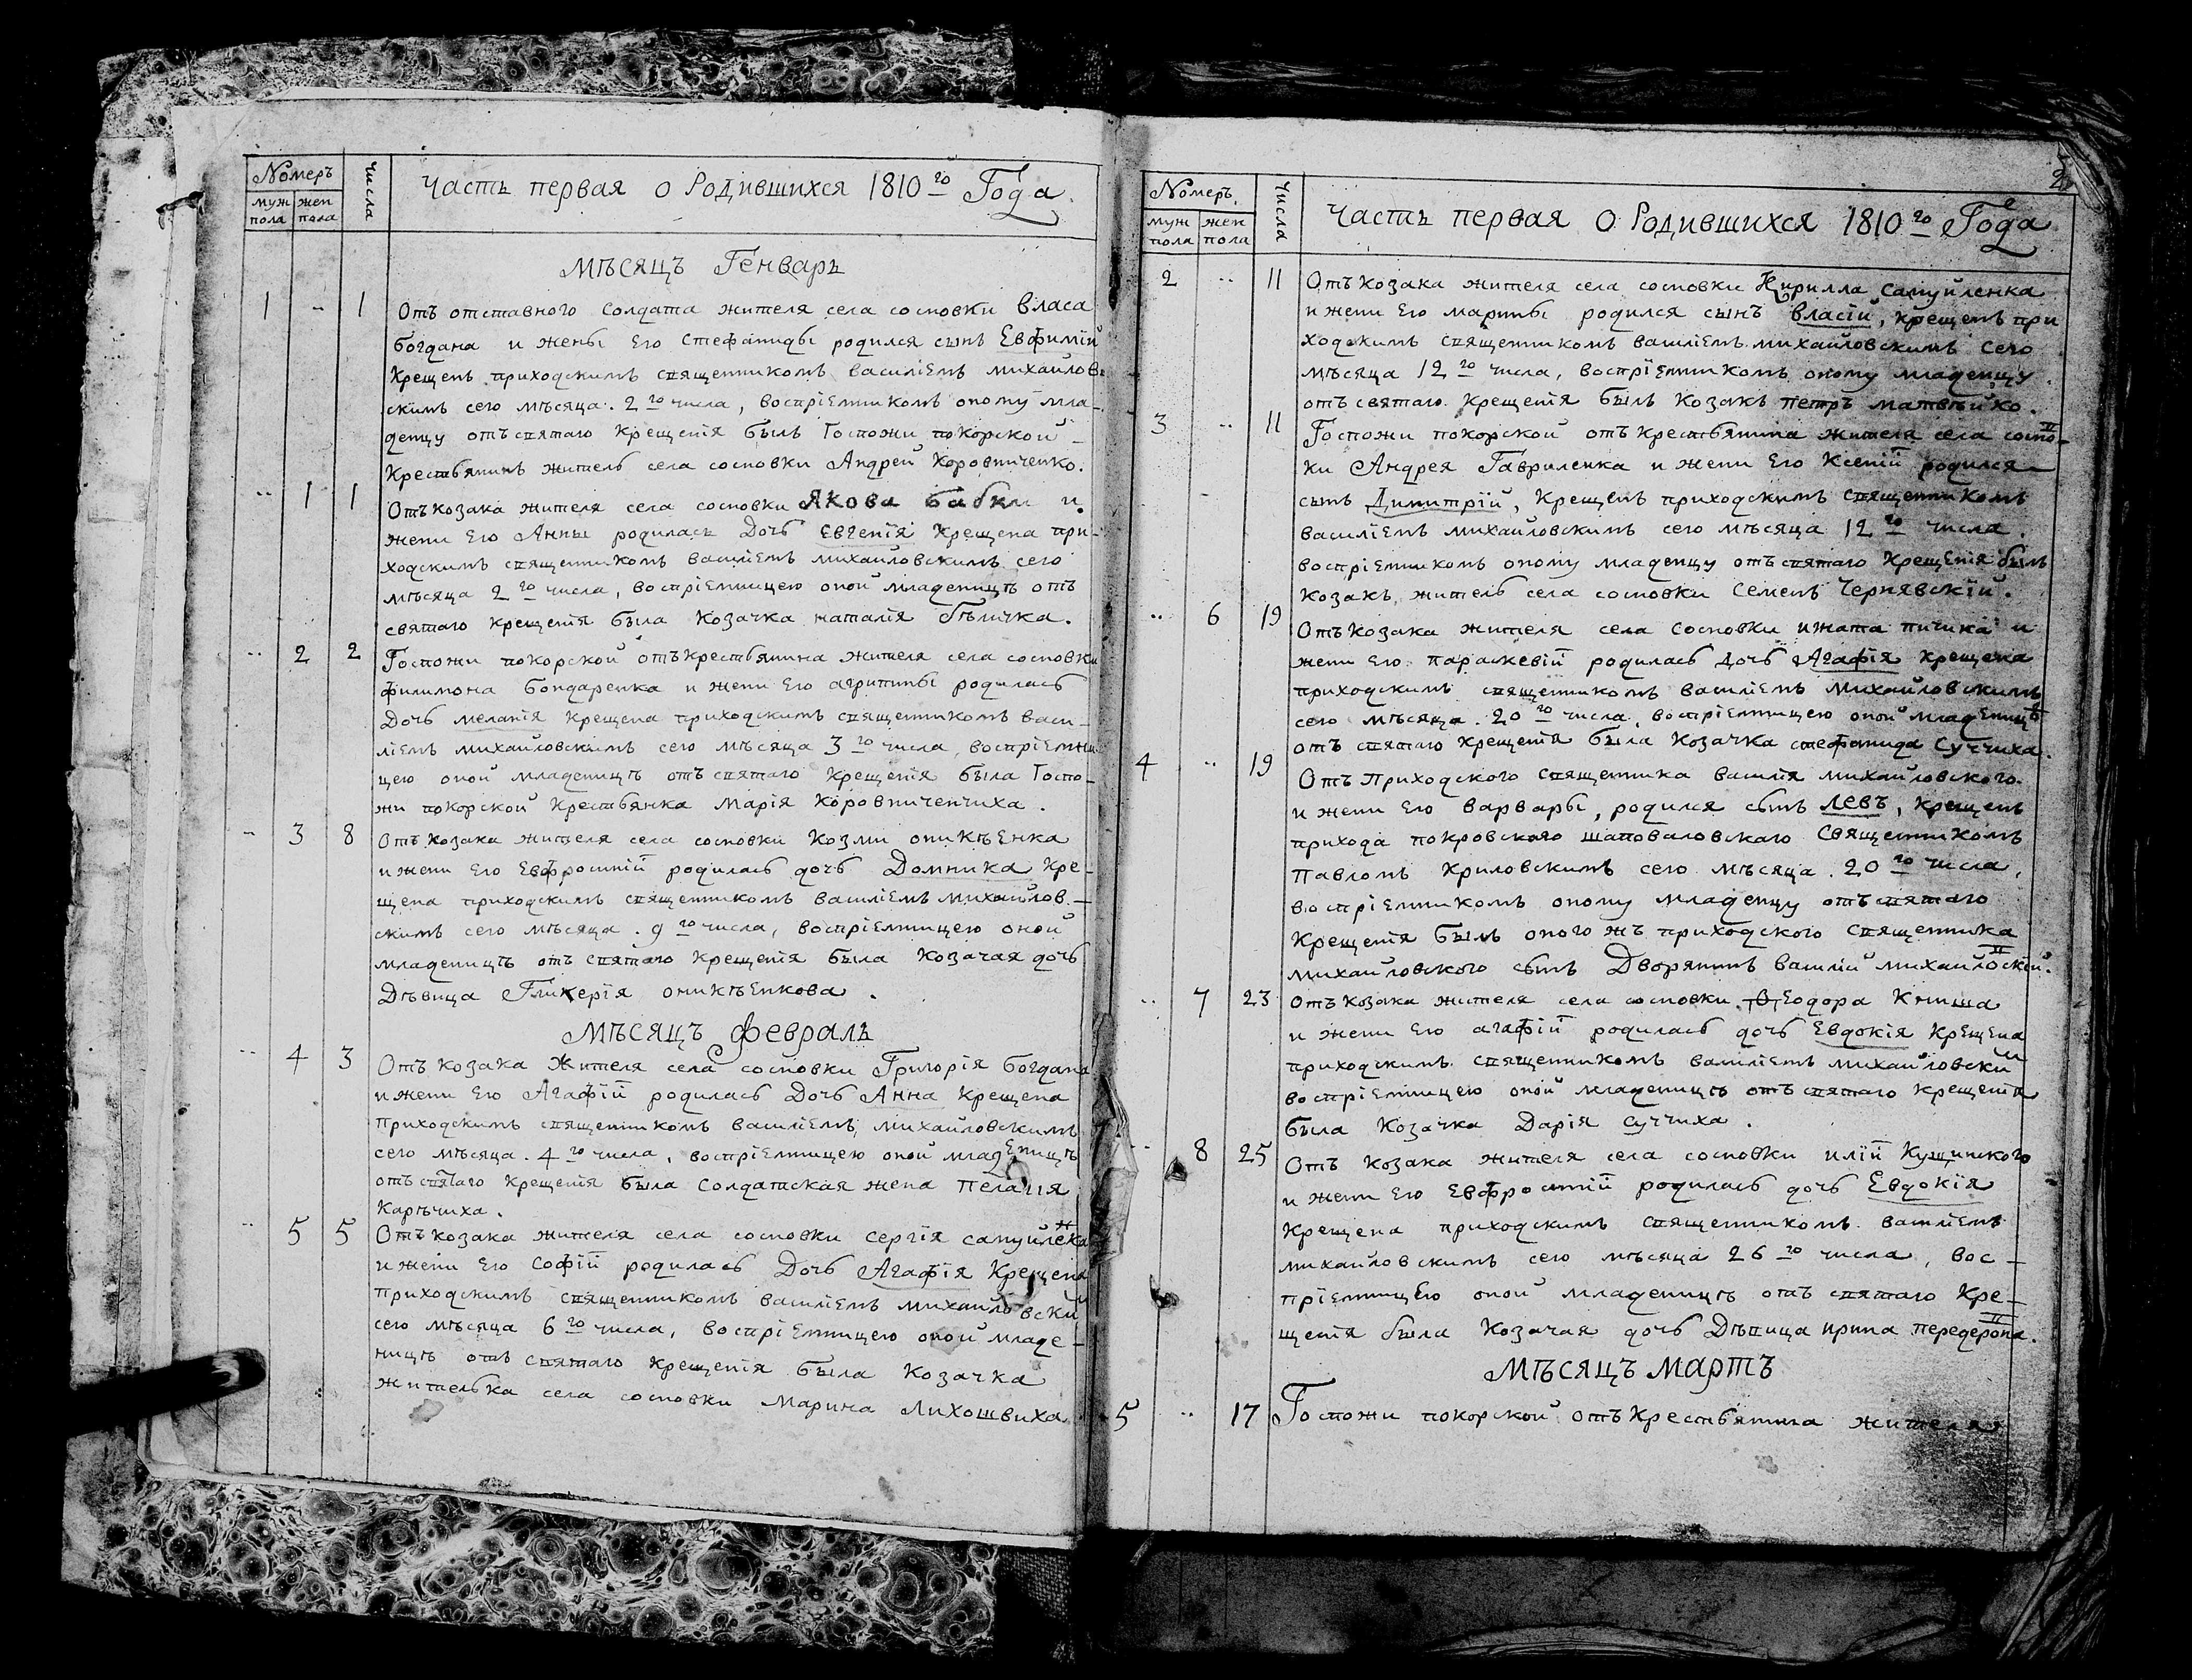 Номеръ
муж пола
жен пола
Числа
Часть первая о Родившихся 1810го Года.
Мѣсяцъ Генварь
1 - 1 Отъ отставного солдата жителя села сосновки Власа
богдана и жены Его Стефаниды родился сынъ Евфимій
Крещенъ приходскимъ священникомъ василіемъ михайлов-
скимъ сего мѣсяца. 2го числа, воспріемникомъ оному мла-
денцу отъ святаго Крещенія былъ Госпожи покорской
Крестьянинъ житель села сосновки Андрей Коровниченко.
.. 1 1 Отъ козака жителя села сосновки Якова бабки и
жени Его Анны родилась Дочь Евгенія Крещена при-
ходскимъ священникомъ василіемъ михайловскимъ сего
мѣсяца 2го числа, воспріемницею оной младеницѣ отъ
святаго крещенія была Козачка наталія бѣличка.
.. 2 2 Госпожи покорской отъ крестьянина жителя села сосновки
филимона бондаренка и жени Его агрипины родилась
Дочь меланія Крещена приходскимъ священникомъ васи-
ліемъ михайловскимъ сего мѣсяца 3го числа, воспріемни
цею оной младеницѣ отъ святаго крещенія была Госпо-
жи покорской Крестьянка Марія Коровниченчиха.
- 3 8 Отъ Козака жителя села сосновки Козми оникѣенка
и жени Его Евфросиніи родилась дочь Домника Кре-
щена приходскимъ священникомъ василіемъ михайлов-
скимъ сего мѣсяца. 9го числа, воспріемницею оной
младеницѣ отъ святаго Крещенія была Козачая дочь
Дѣвица Гликерія оникѣенкова.
Мѣсяцъ февраль
.. 4 3 Отъ козака жителя села сосновки Григорія богдана
и жени Его Агафіи родилась Дочь Анна Крещена
приходскимъ священникомъ василіемъ михайловскимъ
сего мѣсяца. 4го числа, воспріемницею оной младеницѣ
отъ святаго Крещенія была Солдатская жена Пелагія
Карѣчиха.
.. 5 5 Отъ козака жителя села сосновки сергія самуйленка
и жени Его Софіи родилась Дочь Агафія Крещена
приходскимъ священникомъ василіемъ михайловски
сего мѣсяца 6го числа, воспріемницею оной младе-
ницѣ отъ святаго крещенія была Козачка
жителька села сосновки Марина Лихошвиха
Номеръ
муж пола
жен пола
Числа
Часть первая о Родившихся 1810го Года
2 .. 11 Отъ козака жителя села сосновки Кирилла самуйленка
и жени Его марины родился сынъ власій, крещенъ при
ходскимъ священникомъ василіемъ михайловскимъ сего
мѣсяца 12го числа, воспріемникомъ оному младенцу
отъ святаго крещенія былъ козакъ петръ матвѣйко.
3 .. 11 Госпожи покорской отъ крестьянина жителя села соснов-
ки Андрея Гавриленка и жени Его Ксеніи родился
сынъ Димитрій, Крещенъ приходскимъ священникомъ
василіемъ михайловскимъ сего мѣсяца 12го числа.
воспріемникомъ оному младенцу отъ святаго Крещенія былъ
козакъ, житель села сосновки Семенъ Чернявскій.
.. 6 19 Отъ козака жителя села сосновки и
жени Его параскевіи родилась дочь Агафія крещена
приходскимъ священникомъ василіемъ михайловскимъ
сего мѣсяца. 20го числа, воспріемницею оной младеницѣ
отъ святаго крещенія была Козачка стефанида Суччиха.
4 .. 19 Отъ Приходского священника василія михайловского.
и жени Его варвары, родился сынъ левъ, крещенъ
прихода покровского шаповаловскаго священникомъ
Павломъ Криловскимъ сего мѣсяца. 20го числа,
воспріемникомъ оному младенцу отъ святаго
Крещенія былъ оного жъ приходского священника
михайловского сынъ Дворянинъ василій михайловскій.
.. 7 23 Отъ козака жителя села сосновки Ѳеодора Книша
и жени Его агафіи родилась дочь Евдокія крещена
приходскимъ священникомъ василіемъ михайловски
воспріемницею оной младеницѣ отъ святаго Крещенія
была Козачка Дарія суччиха.
.. 8 25 Отъ козака жителя села сосновки иліи Кущинского
и жени Его Евфросиніи родилась дочь Евдокія
Крещена приходскимъ священникомъ василіемъ
михайловскимъ сего мѣсяца 26го числа, вос-
пріемницею оной младеницѣ отъ святаго Кре-
щенія была Козачая дочь Дѣвица ирина передерова.
Мѣсяцъ мартъ
5 .. 17 Госпожи покорской отъ крестьянина жителя